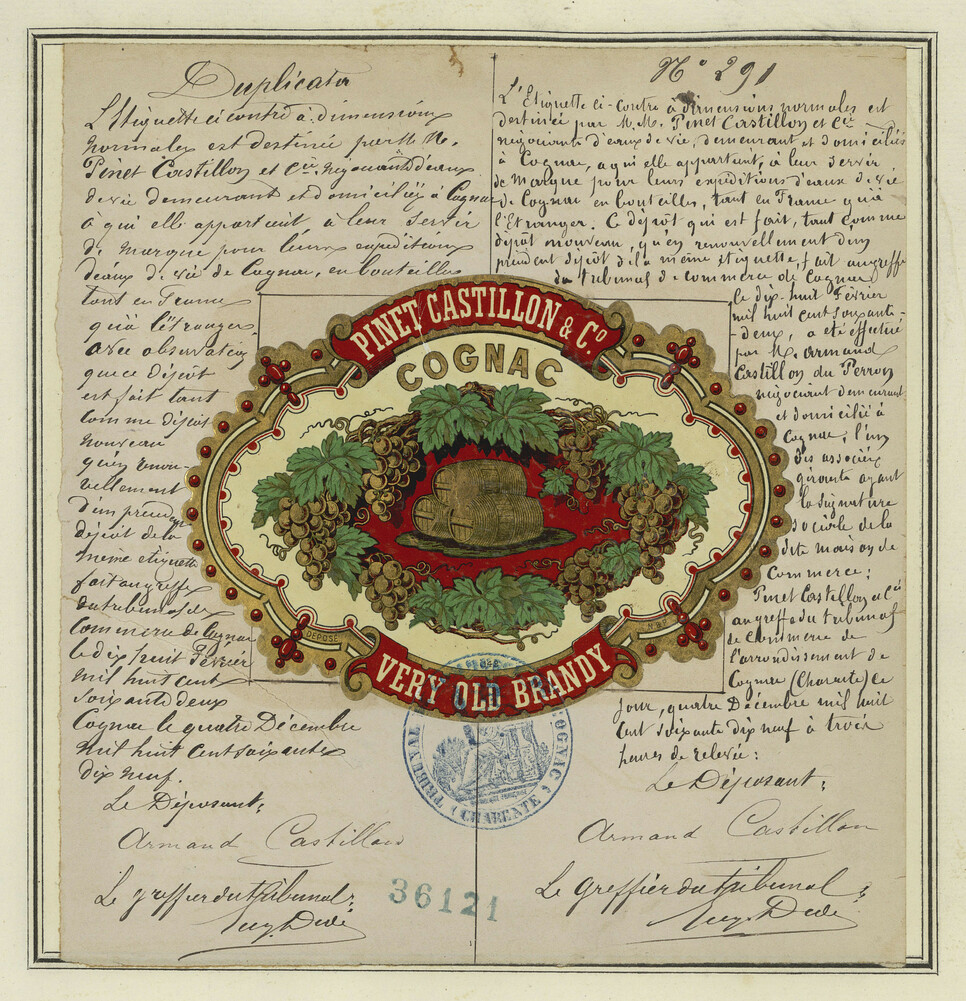 Duplicata
L'Etiquette ci contre à dimensions
normales est destinée par M. M.
Pinet Castillon et Cie négociants d'eaux
de vie demeurant et domiciliés à Cognac
à qui elle appartient, à leur servir
de marque pour leurs expéditions
d'eaux de vie de Cognac, en bouteilles
tant en France
qu'à l'étranger
avec observation
que ce dépôt
est fait tant
comme dépôt
nouveau
qu'en renou-
vellement
d'un précédent
dépôt de la
même étiquette
fait au greffe
du tribunal de
Commerce de Cognac
le dix huit Février
mil huit cent
soixante deux
Cognac le quatre Décembre
mil huit cent soixante
dix neuf.
Le Déposant:
Armand Castillon
Le greffier du tribunal:
No 291
L'Etiquette ci-contre à dimensions normales est
destinée par M. M. Pinet Castillon et Cie
négociants d'eaux de vie, demeurant et domiciliés
à Cognac, à qui elle appartient, à leur servir
de marque pour leurs expéditions d'eaux de vie
de Cognac en bouteilles, tant en France qu'à
l'Etranger. Ce dépôt qui est fait, tant comme
dépôt nouveau, qu'en renouvellement d'un
précédent dépôt de la même étiquette, fait au greffe
du tribunal de commerce de Cognac
le dix-huit Février
mil huit cent soixante-
-deux, a été effectué
par M. Armand
Castillon du Perron
négociant demeurant
et domicilié à
Cognac, l'un
des associés
gérants ayant
la signature
sociale de la
dite maison de
Commerce:
Pinet Castillon et Cie
au greffe du tribunal
de Commerce de
l'arrondissement de
Cognac (Charente) ce
jour, quatre Décembre mil huit
cent soixante dix neuf à trois
heures de relevée:
Le Déposant:
Armand Castillon
Le greffier du tribunal:
PINET CASTILLON & Co.
COGNAC
DÉPOSÉ
VERY OLD BRANDY
COGNAC
(CHARENTE)
36121